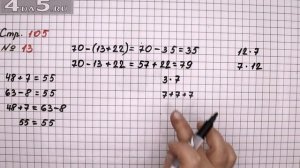 4DA5.RU
Стр. 105
№ 13
70-(13+22)=70-35=35
70-13+22=57+22=79
48+7=55
63-8=55
48+7=63-8
55=55
3·7
7+7+7
12·7
7·12